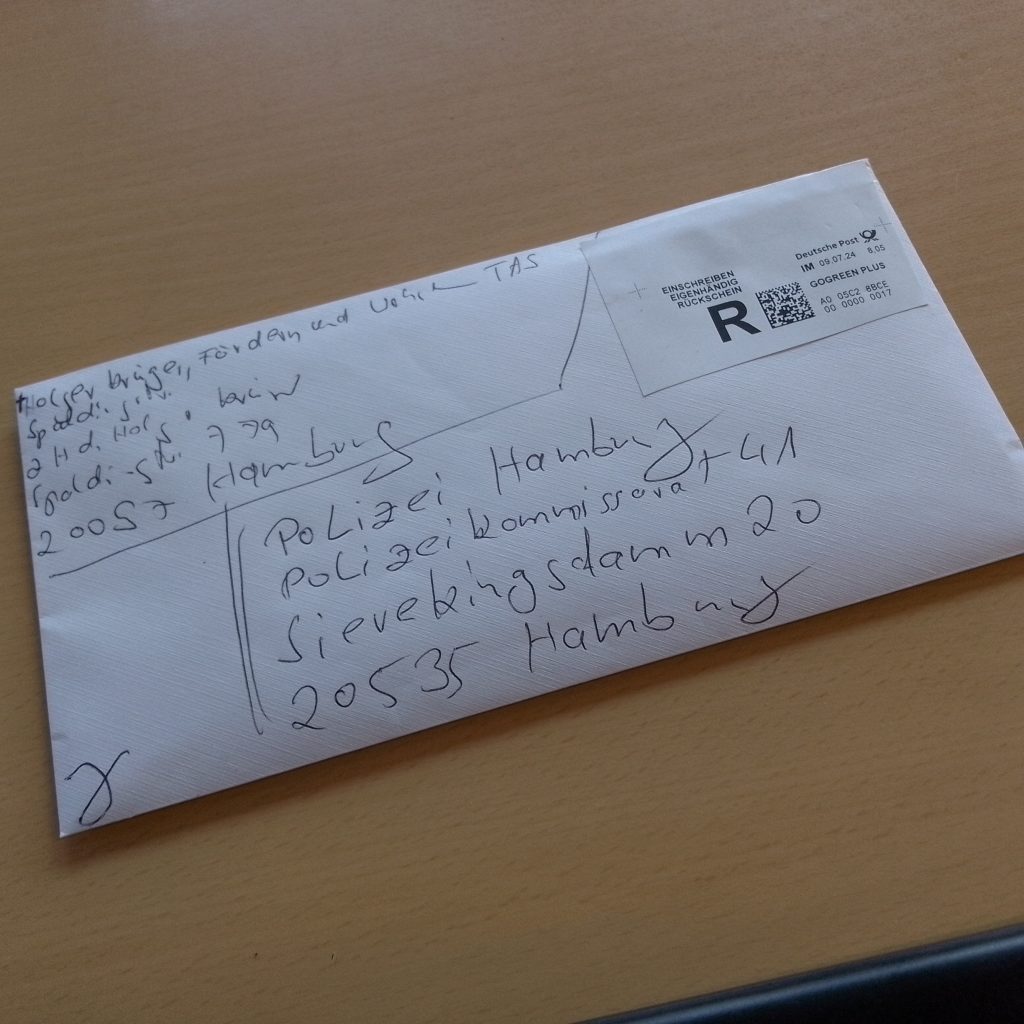 Holger Krüger, Fördern und Wohnen TAS
Spaldingstr.
Spaldingstr.
20057 Hamburg
Polizei Hamburg
Polizeikommissariat 41
Sievekingsdamm 20
20535 Hamburg
EINSCHREIBEN
EIGENHÄNDIG
RÜCKSCHEIN
R
Deutsche Post
IM 09.07.24 8,05
GOGREEN PLUS
A0 05C2 8BCE
00 0000 0017